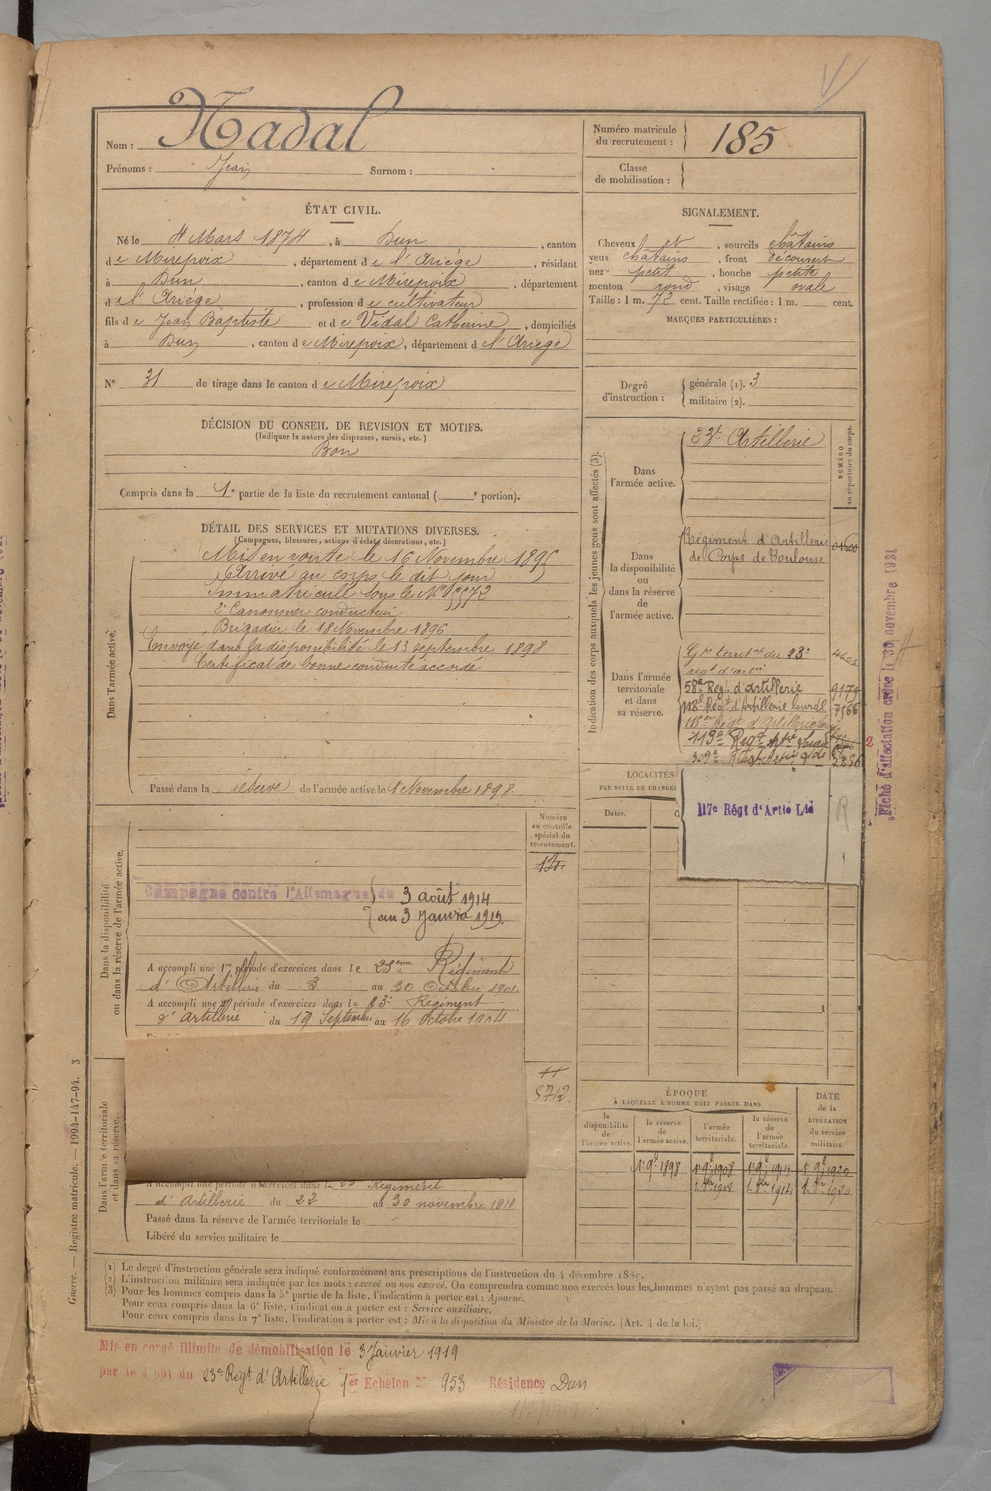 Nom : Nadal
Prénoms : Jean Surnom :
Numéro matricule du recrutement : 185
Classe de mobilisation :
ÉTAT CIVIL.
Né le 4 Mars 1874, à Dun, canton
de Mirepoix, département de l'Ariège, résidant
à Dun, canton de Mirepoix, département
de l'Ariège, profession de cultivateur
fils de Jean Baptiste et de Vidal Catherine, domiciliés
à Dun, canton de Mirepoix, département de l'Ariège
N° 31 de tirage dans le canton de Mirepoix
SIGNALEMENT.
Cheveux, sourcils châtains
yeux châtains, front découvert
nez petit, bouche petite
menton rond, visage ovale
Taille : 1 m. 72 cent. Taille rectifiée : 1 m. cent.
MARQUES PARTICULIÈRES :
Degré d'instruction : générale (1). 3
militaire (2).
DÉCISION DU CONSEIL DE REVISION ET MOTIFS.
(Indiquer la nature des dispenses, sursis, etc.)
Bon
Compris dans la 1e partie de la liste du recrutement cantonal ( e portion).
DÉTAIL DES SERVICES ET MUTATIONS DIVERSES.
(Campagnes, blessures, actions d'éclat, décorations, etc.)
Dans l'armée active.
Mis en route le 16 Novembre 1895
Arrivé au corps le dit jour
Immatriculé sous le N°
2e Canonnier conducteur
Brigadier le 18 Novembre 1896
Envoyé dans la disponibilité le 13 septembre 1898
Certificat de bonne conduite accordé
Passé dans la réserve de l'armée active le 1 Novembre 1898
Indication des corps auxquels les jeunes gens sont affectés (3).
NUMÉRO au répertoire du corps.
Dans l'armée active.
23e Artillerie
Dans la disponibilité ou dans la réserve de l'armée active.
Régiment d'Artillerie
de Corps de Toulouse
Dans l'armée territoriale et dans sa réserve.
Gpe territal du 23e
regt d'artie
58e Regt d'artillerie 9179
118e Regt d'Artillerie lourde 7566
117e Régt d'Artie Lde
R
LOCALITÉS
Dates.
Dans la disponibilité ou dans la réserve de l'armée active.
Numéro au contrôle spécial du recrutement.
Campagne contre l'Allemagne du 3 août 1914
au 3 Janvier 1919.
A accompli une 1re période d'exercices dans le 23ème Régiment
d'Artillerie du 3 au 30 Octobre 1901
A accompli une 2e période d'exercices dans le 23e Régiment
d'Artillerie du 19 Septembre au 16 octobre 1904
8712.
Dans l'armée territoriale et dans sa réserve.
A accompli une période d'exercices dans le 23 Régiment
d'Artillerie du 22 au 30 novembre 1910
Passé dans la réserve de l'armée territoriale le
Libéré du service militaire le
ÉPOQUE
À LAQUELLE L'HOMME DOIT PASSER DANS
la disponibilité de l'armée active.
la réserve de l'armée active.
l'armée territoriale.
la réserve de l'armée territoriale.
DATE de la LIBÉRATION du service militaire.
1er 9bre 1898 1er 9bre 1908 1er 9bre 1914 1er 9bre 1920
(1) Le degré d'instruction générale sera indiqué conformément aux prescriptions de l'instruction du 4 décembre 1889.
(2) L'instruction militaire sera indiquée par les mots : exercé ou non exercé. On comprendra comme non exercés tous les hommes n'ayant pas passé au drapeau.
(3) Pour les hommes compris dans la 5e partie de la liste, l'indication à porter est : Ajourné.
Pour ceux compris dans la 6e liste, l'indication à porter est : Service auxiliaire.
Pour ceux compris dans la 7e liste, l'indication à porter est : Mis à la disposition du Ministre de la Marine. (Art. 4 de la loi.)
Mis en congé illimité de démobilisation le 3 Janvier 1919
par le dépôt du 23e Régt d'Artillerie 1er Echelon N° 953 Résidence Dun
Guerre. — Registre matricule. — 1994-147-94. 3
Fiche d'affectation créée le 30 novembre 1931